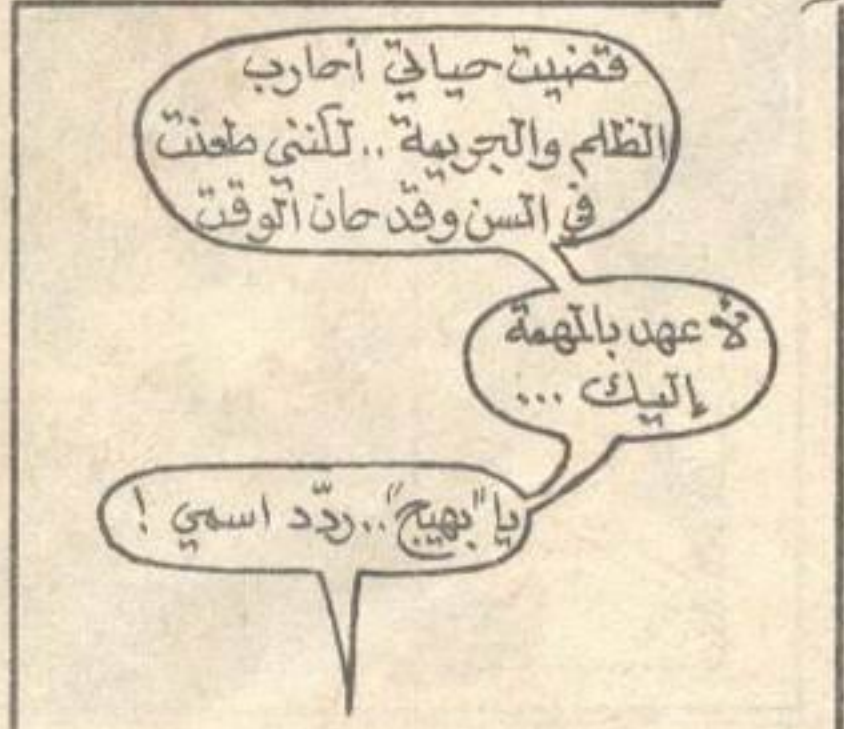 قضيت حياتي أحارب
الظلم والجريمة .. لكنني طعنت
في السن وقد حان الوقت
لأعهد بالمهمة
إليك ...
يا "بهيج" .. ردّد اسمي !